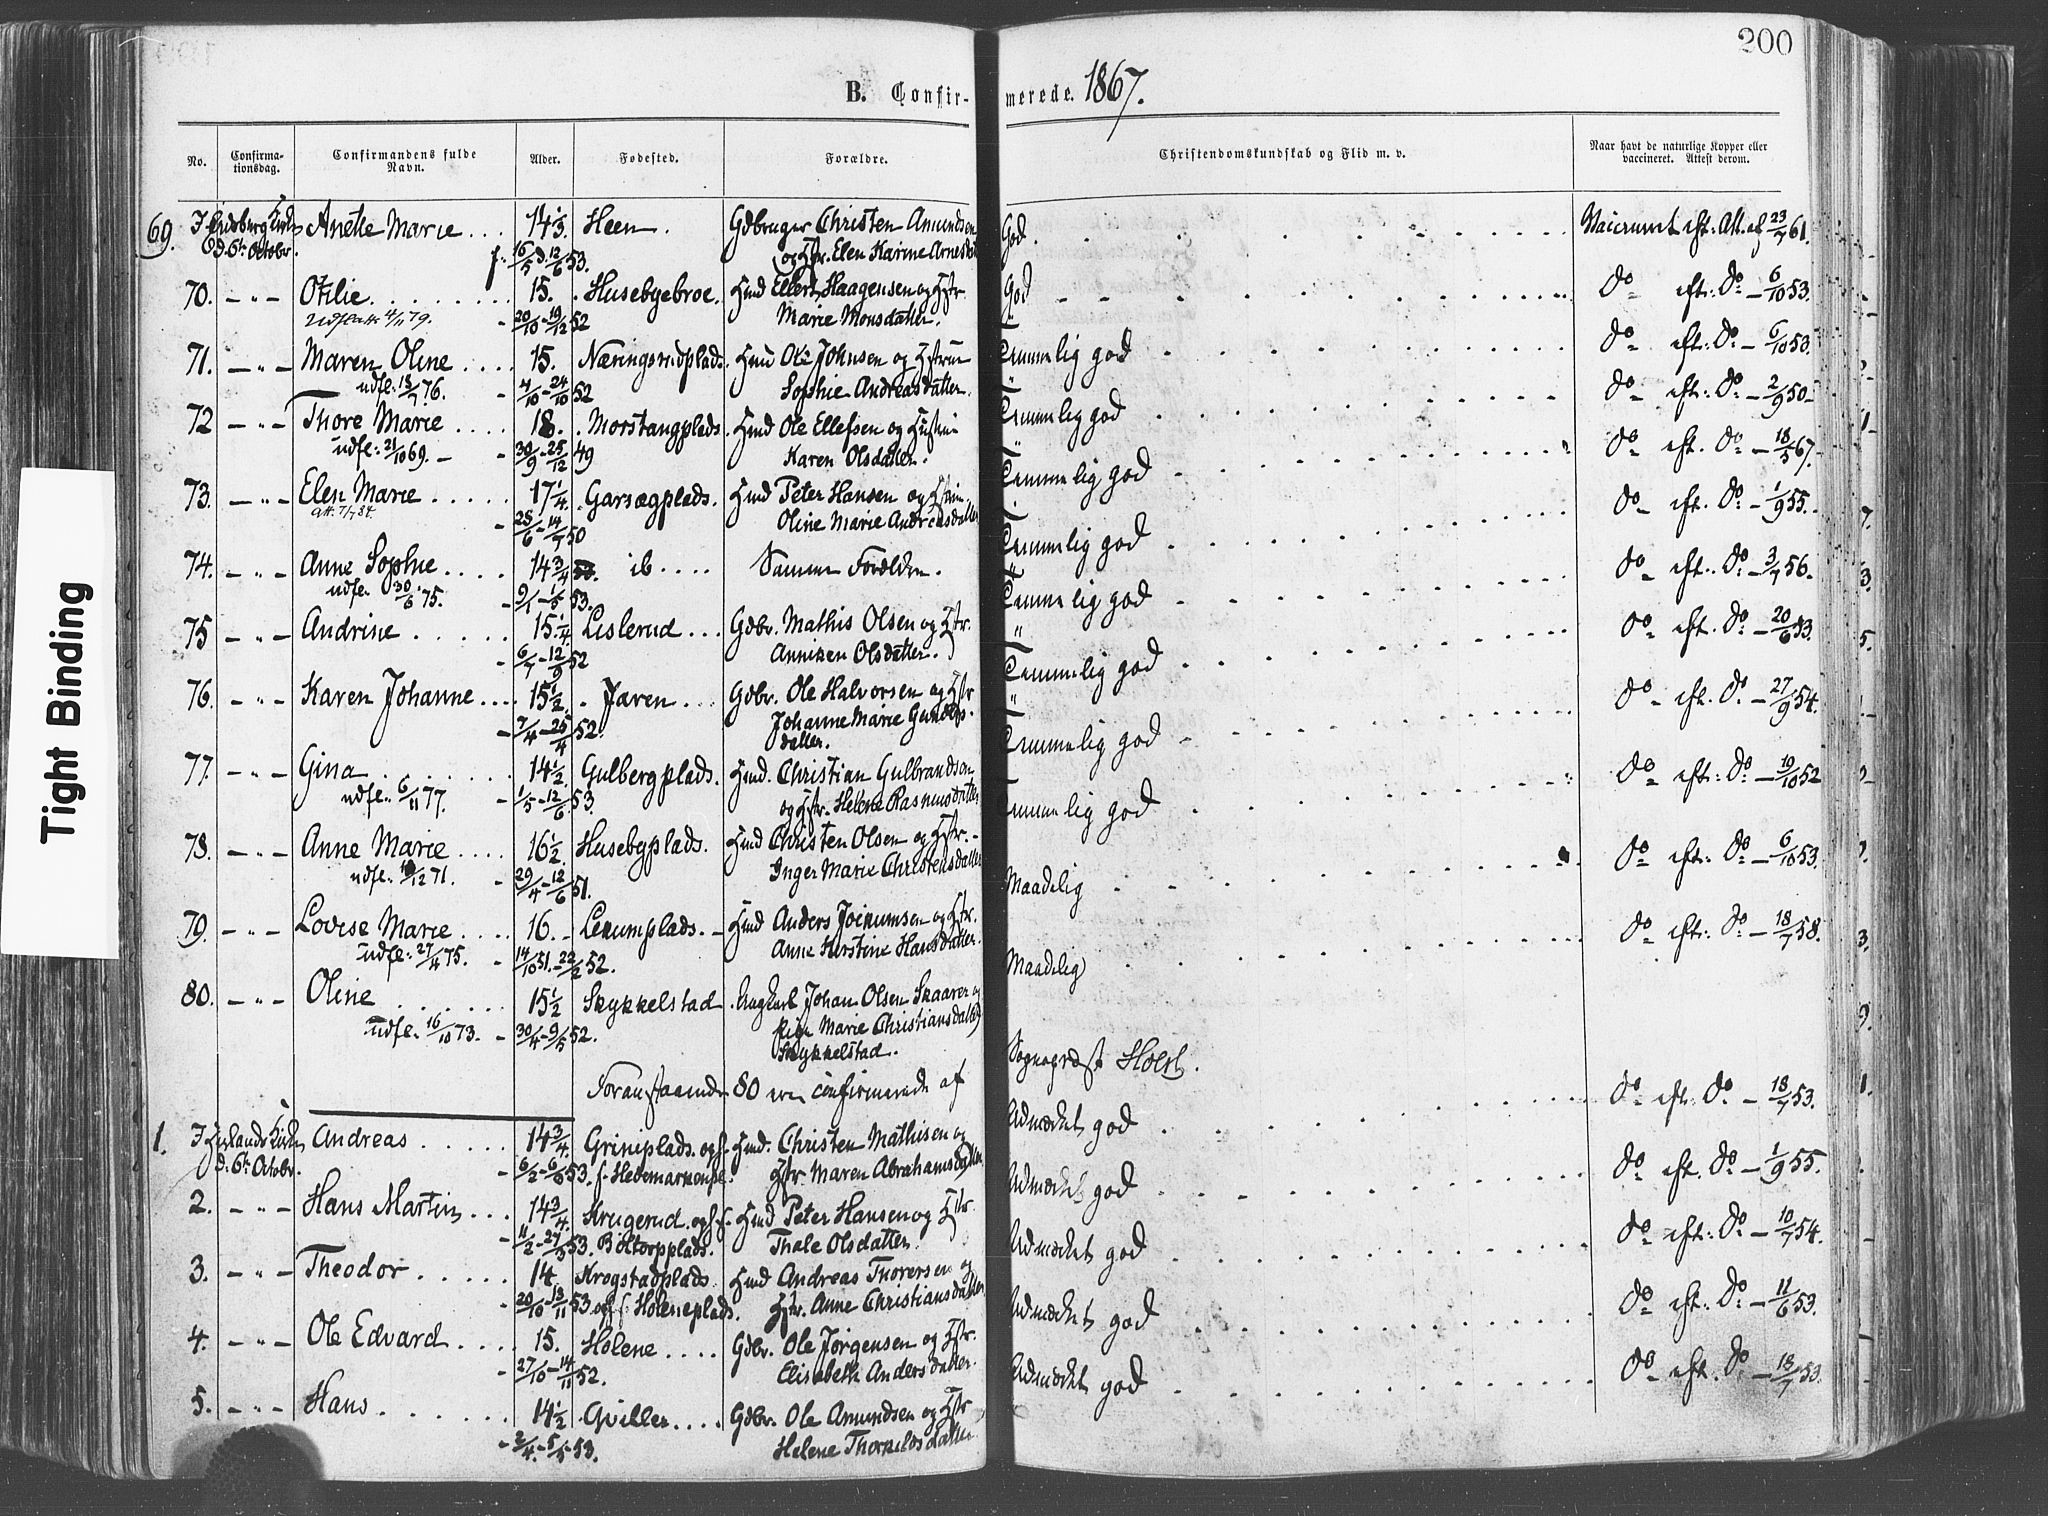 200
B. Confir- merede. 1867.
No. Confirma-tionsdag. Confirmandens fulde Navn. Alder. Fødested. Forældre. Christendomskundskab og Flid m. v. Naar havt de naturlige Kopper eller vaccineret. Attest derom.
69. I Eidsberg Kirke Anette Marie 14 1/3. Heen. Gdbruger Christen Amundsen God Vaccineret eft: Att. af 23/7 61.
d. 6te Octobr. f. 16/5 d. 12/6 53. og Hstr. Elen Karine Arnesdtr
70. — " — Otilie. 15. Husebyebroe. Hmd Ellert Haagensen og Hstr. God do eft: do — 6/10 53.
Udfl. att. 4/11 79. 20/10 - 19/12 52 Marie Monsdatter.
71. — " — Maren Oline 15. Næringsrudplads. Hmd Ole Johnsen og Hstrue Temmelig god do eft: do — 6/10 53.
udfl. 13/7 76. 4/10 - 24/10 52 Sophie Andreasdatter.
72 — " — Thore Marie 18. Morstangplads. Hmd Ole Ellefsen og Hustru Temmelig god do eft: do — 2/9 50
udfl. 21/10 69. 30/9 - 25/12 49 Karen Olsdatter.
73. — " — Elen Marie 17 1/4. Garsægplads. Hmd Peter Hansen og Temmelig god do eft. do — 18/5 67.
Att. 7/7 84. 25/6 - 14/7 50 Oline Marie Andreasdatter
74. — " — Anne Sophie 14 3/4 ib Samme Forældre. Temmelig god do eft. do — 1/9 55.
udfl. 30/6 75. 9/1 - 1/5 53.
75 — " — Andrine 15 1/4 Lislerud Gdbr. Mathis Olsen og Hstr. Temmelig god do eft. do — 3/7 56.
6/7 - 12/9 52 Anniken Olsdatter.
76. — " — Karen Johanne 15 1/2. Jaren. Gdbr. Ole Halvorsen og Hstr Temmelig god do eft. do — 20/6 53.
7/4 - 25/4 52. Johanne Marie datter.
77. — " — Gina 14 1/2. Gulbergplads. Hmd. Christian Gulbrandsen Temmelig god do eft. do — 27/9 54.
udfl. 6/11 77. 1/5 - 12/6 53. og Hstr. Helene Rasmusdatter
78. — " — Anne Marie 16 1/2. Husebyplads. Hmd Christen Olsen og Hstr. Temmelig god do eft: do — 19/10 52
udfl. 12 71. 29/4 - 12/6 51. Inger Marie Christensdatter
79. — " — Lovise Marie 16. Lekumplads. Hmd Anders Joekumsen og Hstr. Maadelig do eft: do — 6/10 53.
udfl. 27/4 75. 14/10 51. - 22/2 52. Anne Kirstine Hansdatter.
80. — " — Oline 15 1/2 Skykkelstad Ungkarl Johan Olsen Skaarer og Maadelig do eft: do — 18/7 58.
udfl. 16/10 73. 30/4 - 9/5 52. Pige Marie Christiansdatter
Skykkelstad.
Foranstaaende 80 ere confirmerede af Sognepræst Holst.
1. I Hærlands Kirke Andreas 14 3/4. Griniplads. opf. Hmd. Christen Mathisen og Udmærket god do eft: do — 18/7 53.
d. 6te Octobr. 6/2 - 6/3 53. f. Hedemarken Hstr. Maren Abrahamsdatter
2. — " — Hans Martin 14 3/4. Krugerud. opf. Hmd Peter Hansen og Hstr. Udmærket god do eft. do — 1/9 55.
11/2 - 27/3 53. Boltorpplads. Thale Olsdatter
3. — " — Theodor 14. Krogstadplads Hmd Andreas Thorersen og Udmærket god do eft: do — 10/7 54.
20/10 - 13/11 53 opf. i Holeneplads. Hstr. Anne Christiansdatter
4. — " — Ole Edvard 15. Holene Gdbr. Ole Jørgensen og Hstr. Udmærket god do eft: do — 11/6 53.
27/10 - 14/11 52. Elisabeth Andersdatter.
5. — " — Hans. 14 1/2 Gviller Gdbr. Ole Amundsen og Hstr Udmærket god do eft. do — 18/7 53.
2/4 - 5/5 53. Helene Thorkildsdatter
Tight Binding